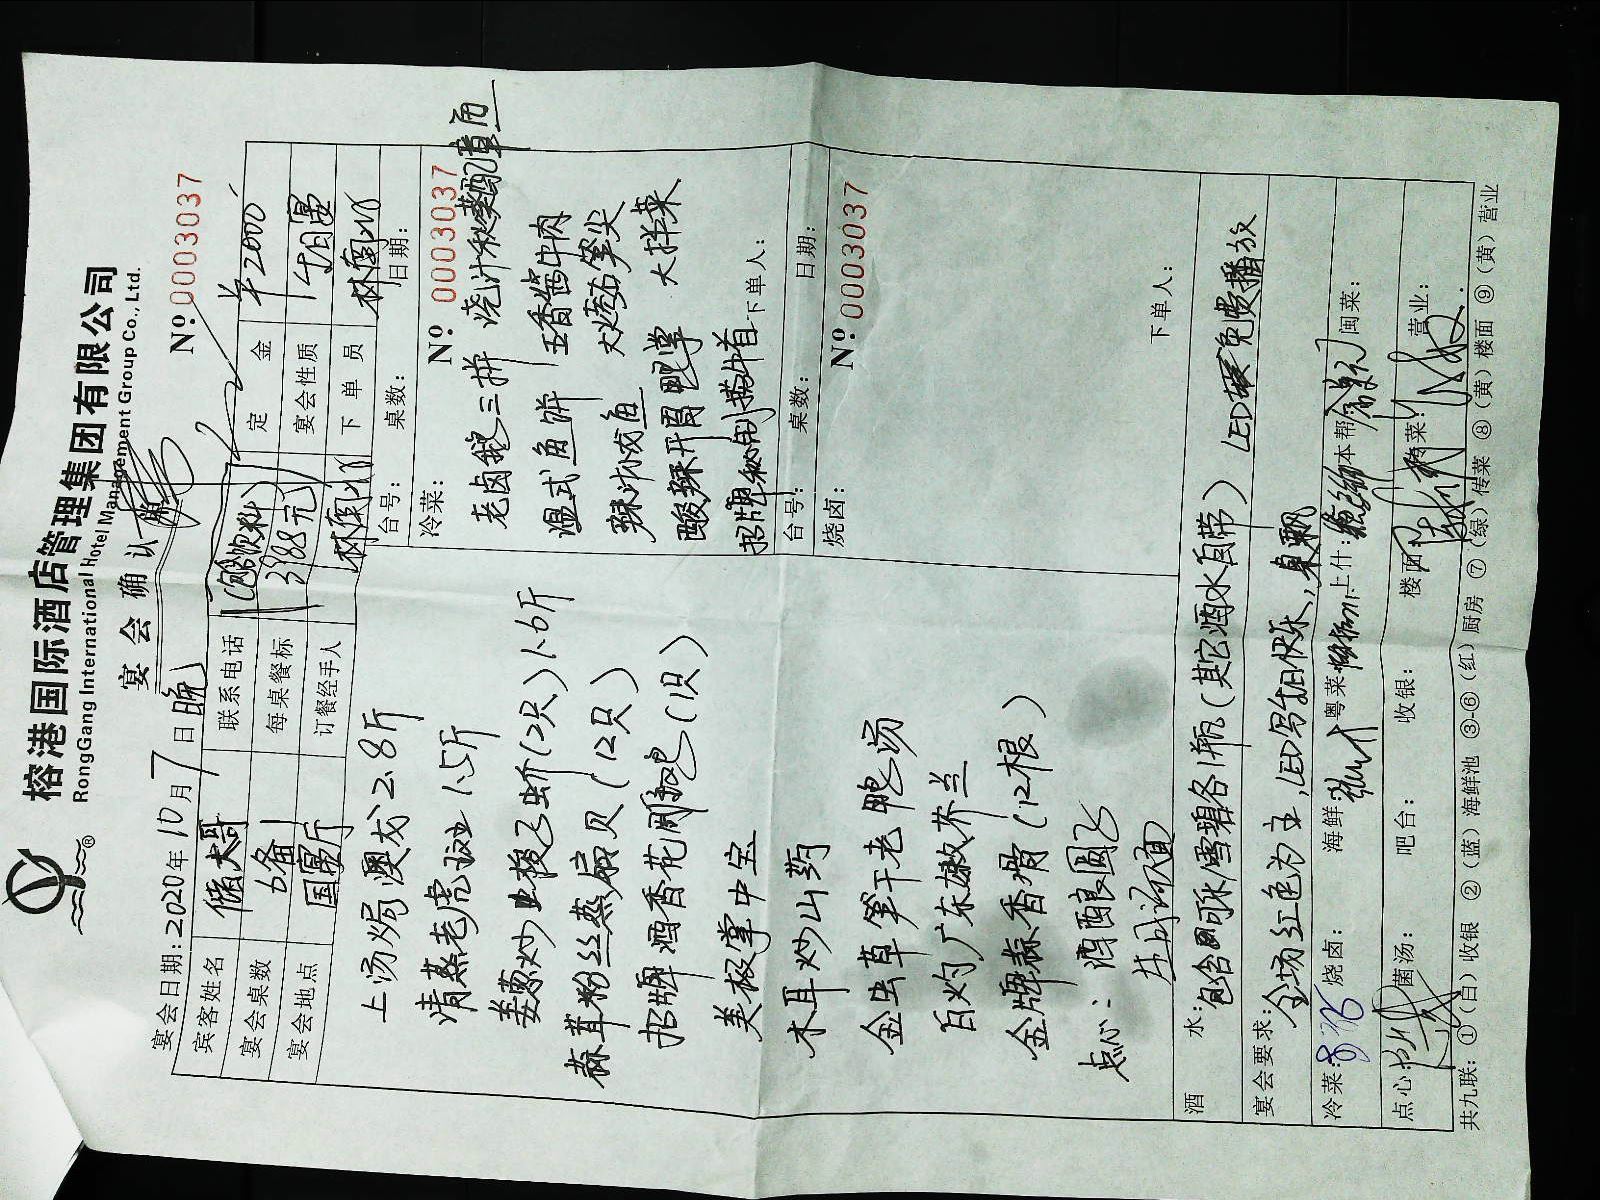 榕港国际酒店管理集团有限公司
RongGang International Hotel Management Group Co., Ltd.
宴会确认
№ 0003037
宴会日期：2020年10月7日晚
宾客姓名 储大哥 联系电话 (包饮料) 定金 ¥2000
宴会桌数 6备1 每桌餐标 3188元 宴会性质 生日宴
宴会地点 国宴厅 订餐经手人 下单员
台号： 桌数： 日期：
上汤焗澳龙2.8斤
清蒸老虎斑1.5斤
姜葱炒蟹(2只)1.6斤
蒜茸粉丝蒸扇贝(12只)
招牌酒香花雕(1只)
美极掌中宝
木耳炒山药
金虫草笋干老鸭汤
白灼广东嫩芥兰
金牌蒜香骨(12根)
点心：酒酿圆子
生日面
冷菜： № 0003037
老卤三拼
浇汁秋葵配章鱼
温式鱼饼
五香酱牛肉
辣汁
笋尖
酸辣开胃鸭掌
大拌菜
招牌秘制
下单人：
台号： 桌数： 日期：
烧卤： № 0003037
下单人：
酒水：包含可乐/雪碧各1瓶(其它酒水自带) LED免费播放
宴会要求：全场红色为主，LED写生日快乐，
冷菜： 烧卤： 海鲜： 粤菜 上什： 本帮 闽菜：
点心： 菌汤： 吧台： 收银： 楼面： 传菜： 营业：
共九联：①（白）收银 ②（蓝）海鲜池 ③-⑥（红）厨房 ⑦（绿）传菜 ⑧（黄）楼面 ⑨（黄）营业